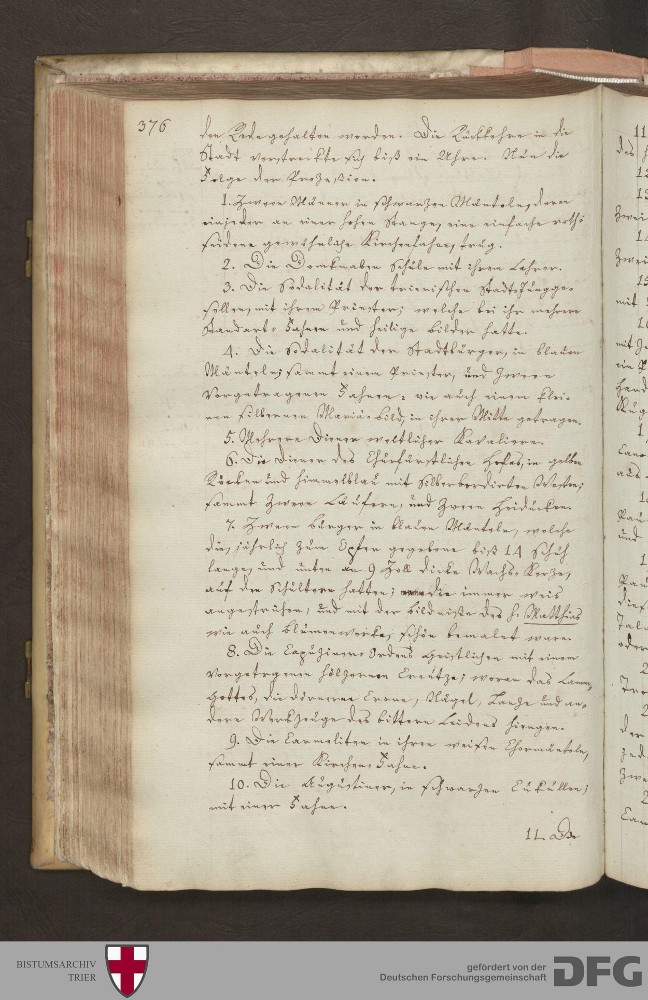 376
den Rede gehalten worden. Die Rückkehre in die
Stadt verstreckte sich biß ein Uhre. Nun die
Folge der Prozeßion.
1. Zween Männer in schwarzen Mänteln, deren
einjeder an einer hohen Stange, eine einfache roth
seidene gewöhnliche Kirchenfahne, trug.
2. Die Domknaben Schule mit ihrem Lehrer.
3. Die Sodalität der trierischen Stadt-Jungge-
sellen, mit ihrem Priester; welche bei ihr mehrere
Standart-Fahnen und heilige bilder hatte.
4. Die Sodalität der Stadtbürger, in blauen
Mänteln; sammt einem Priester, und Zween
vorgetragenen Fahnen: wie auch einem klei-
nen silbernen Mariä-bild, in ihrer Mitte getragen.
5. Mehrere Diener weltlicher Kavaliere.
6. Die Diener des Churfürstlichen Hofes, in gelben
Röcken und himmelblau mit Silberbordirten Westen;
sammt Zween Läufern, und Zween Heiducken.
7. Zween bürger in blauen Mänteln, welche
die, jährlich zum Opfer gegebene biß 14 Schuh
lange, und unten an 9 Zoll dicke Wachs-Kerze,
auf den Schultern hatten; die immer weis
angestrichen, und mit der bildniße des h. Matthias
wie auch blumenwerke, schön bemalet ware.
8. Die Capuziner-Ordens Geistlichen mit einem
vorgetragenen hölzernen Creutze; woran das Lamm
Gottes, die dörnerne Crone, Nägel, Lanze und an-
dere Werkzeuge des bittern Leidens hiengen.
9. Die Carmeliten in ihren weisen Chormänteln,
sammt einer Kirchen-Fahne.
10. Die Augustiner, in schwarzen Cukullen;
mit einer Fahne.
11. Die
BISTUMSARCHIV
TRIER
gefördert von der
Deutschen Forschungsgemeinschaft
DFG